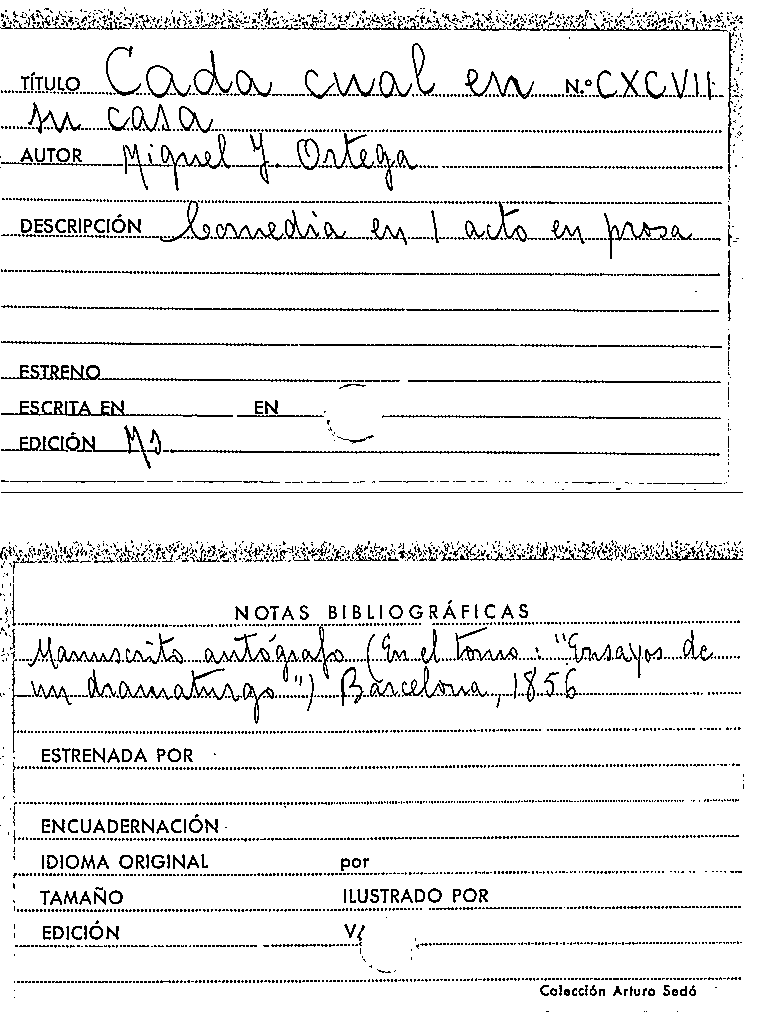 TÍTULO Cada cual en N.º CXCVII
su casa
AUTOR Miguel Y. Ortega
DESCRIPCIÓN Comedia en 1 acto en prosa
ESTRENO
ESCRITA EN EN
EDICIÓN Ms
NOTAS BIBLIOGRÁFICAS
Manuscrito autógrafo (En el tomo: "Ensayos de
un dramaturgo") Barcelona, 1856
ESTRENADA POR
ENCUADERNACIÓN
IDIOMA ORIGINAL por
TAMAÑO ILUSTRADO POR
EDICIÓN
Colección Arturo Sedó